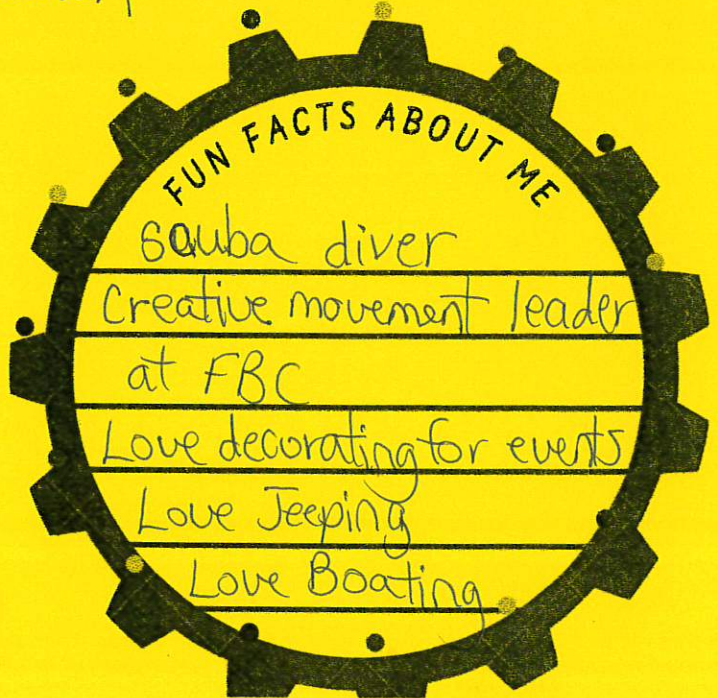 FUN FACTS ABOUT ME
sauba diver
Creative movement leader
at FBC
Love decorating for events
Love Jeeping
Love Boating